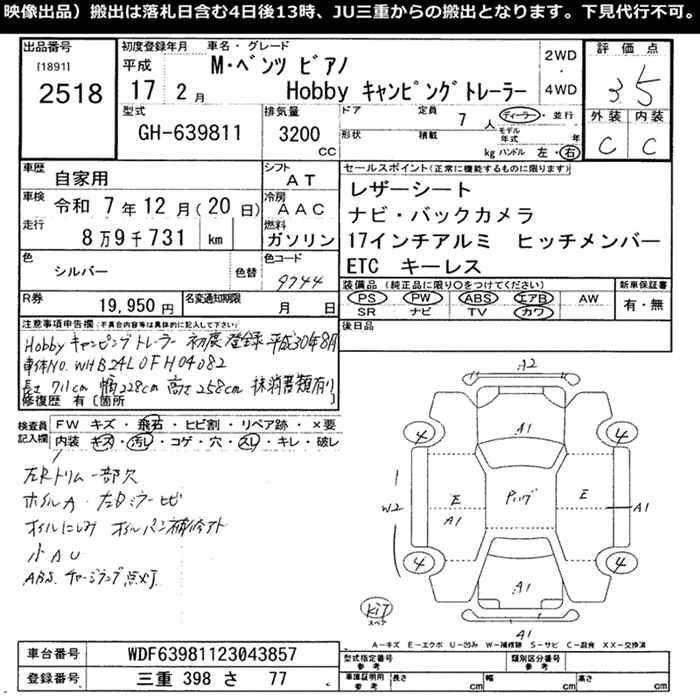 映像出品）搬出は落札日含む4日後13時、JU三重からの搬出となります。下見代行不可。
出品番号 初度登録年月 車名・グレード 評価点
[1891] 平成 M・ベンツ ビアノ 2WD
2518 17 2月 Hobby キャンピングトレーラー ・ 4WD 3.5
型式 排気量 ドア 定員 7 人 ディーラー・並行 外装 内装
GH-639811 3200 CC 形状 積載 kg モデル年式 年 ハンドル 左・右 C C
車歴 自家用 シフト AT セールスポイント(正常に機能するものに限ります)
車検 令和 7年 12月(20日) 冷房 AAC レザーシート
ナビ・バックカメラ
走行 8万9千731 km 燃料 ガソリン 17インチアルミ ヒッチメンバー
ETC キーレス
色 シルバー 色替 色コード 9744 装備品（純正品に限り○をつけてください） 新車保証書
PS PW ABS エアB AW 有・無
SR ナビ TV カワ
R券 19,950円 名変通知期限 月 日 後日品
注意事項申告欄（不具合内容等は具体的に記入して下さい）
Hobby キャンピングトレーラー 初度登録 平成30年8月
車体NO. WHB24L0FH04082
長さ 711cm 幅228cm 高さ258cm 抹消書類有り
修復歴 有〔箇所
検査員記入欄 FW キズ・飛石・ヒビ割・リペア跡・×要
内装 キズ・汚レ・コゲ・穴・スレ・キレ・破レ
左Rトリム一部欠
ホイルA・左Dミラーヒビ
オイルにじみ オイルパン補修アト
小AU
ABS、チャージランプ点灯
A2
A1
4 4
W2 E A1 Pリング E A1
4 4
A1
A1
KIT
スペア
A-キズ E-エクボ U-凹み W-補修跡 S-サビ C-腐食 XX-交換済
車台番号 WDF63981123043857 型式指定番号 参考 類別区分番号 参考
登録番号 三重 398 さ 77 車庫証明用 参考 長さ cm 幅 cm 高さ cm